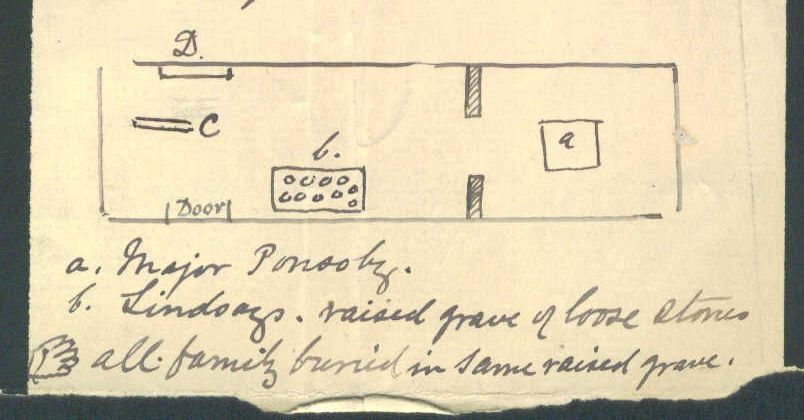 D.
C
a
b.
Door
a. Major Ponsoby.
b. Lindsays. raised grave of loose stones
all family buried in same raised grave.